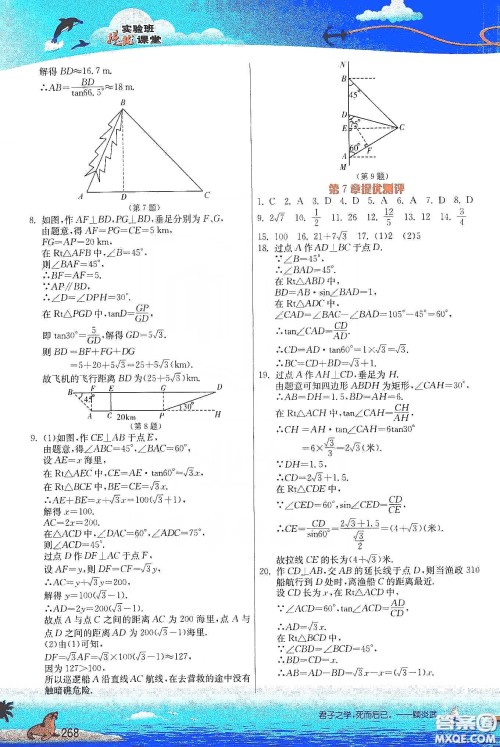 实验班
提优课堂
解得 BD≈16.7 m.
∴AB=BD/tan66.5°≈18 m.
B
A
D
C
(第 7 题)
8. 如图,作 AF⊥BD,PG⊥BD,垂足分别为 F,G,
由题意,得 AF=PG=CE=5 km,
FG=AP=20 km,
在 Rt△AFB 中,∠B=45°,
则∠BAF=45°,
∴BF=AF=5.
∵AP∥BD,
∴∠D=∠DPH=30°.
在 Rt△PGD 中,tanD=GP/GD,
即 tan30°=5/GD,解得 GD=5√3.
则 BD=BF+FG+DG
=5+20+5√3=25+5√3(km).
故飞机的飞行距离 BD 为(25+5√3)km.
B F E G D
45°
130°
A C 20km P H
(第 8 题)
9. (1)如图,作 CE⊥AB 于点 E,
由题意,得∠ABC=45°,∠BAC=60°,
设 AE=x 海里,
在 Rt△AEC 中,CE=AE·tan60°=√3x,
在 Rt△BCE 中,BE=CE=√3x.
∴AE+BE=x+√3x=100(√3+1),
解得 x=100.
AC=2x=200.
在△ACD 中,∠DAC=60°,∠ADC=75°,
则∠ACD=45°.
过点 D 作 DF⊥AC 于点 F,
设 AF=y,则 DF=CF=√3y,
∴AC=y+√3y=200,
解得 y=100(√3-1),
∴AD=2y=200(√3-1).
故点 A 与点 C 之间的距离 AC 为 200 海里,点 A 与
点 D 之间的距离 AD 为 200(√3-1)海里.
(2)由(1)可知,
DF=√3AF=√3×100(√3-1)≈127,
因为 127>100.
所以巡逻船 A 沿直线 AC 航线,在去营救的途中没有
触暗礁危险.
N
B
45°
D
E
75°
C
F
60°
A
M
(第 9 题)
第 7 章提优测评
1. C 2. A 3. D 4. D 5. A 6. A 7. D 8. D
9. 2√7 10. 1/2 11. 26 12. 12/5 13. 12 14. 3/4
15. 100 16. 21+7√3 17. (1)2 (2)5
18. 过点 A 作 AD⊥BC 于点 D.
∵∠B=45°,
∴∠BAD=45°.
在 Rt△ABD 中,
BD=AB·sin∠BAD=1,
在 Rt△ADC 中,
∠CAD=∠BAC-∠BAD=105°-45°=60°,
∴tan∠CAD=CD/AD,
∴CD=AD·tan60°=1×√3=√3.
∴BC=BD+CD=1+√3.
19. 过点 A 作 AH⊥CD,垂足为 H.
由题意可知四边形 ABDH 为矩形,∠CAH=30°,
∴AB=DH=1.5,BD=AH=6.
在 Rt△ACH 中,tan∠CAH=CH/AH,
∴CH=AH·tan∠CAH=6tan30°
=6×√3/3=2√3(米).
∵DH=1.5,
∴CD=2√3+1.5.
在 Rt△CDE 中,
∵∠CED=60°,sin∠CED=CD/CE,
∴CE=CD/sin60°=(2√3+1.5)/(√3/2)=(4+√3)(米).
故拉线 CE 的长为(4+√3)米.
20. 作 CD⊥AB,交 AB 的延长线于点 D,则当渔政 310
船航行到 D 处时,离渔船 C 的距离最近.
设 CD 长为 x,在 Rt△ACD 中,
∵∠ACD=60°,tan∠ACD=AD/CD,
∴AD=√3x.
在 Rt△BCD 中,
∵∠CBD=∠BCD=45°,
∴BD=CD=x.
∴AB=AD-BD=√3x-x=(√3-1)x.
268
君子之学,死而后已。——顾炎武
答案圈
MXQE.COM